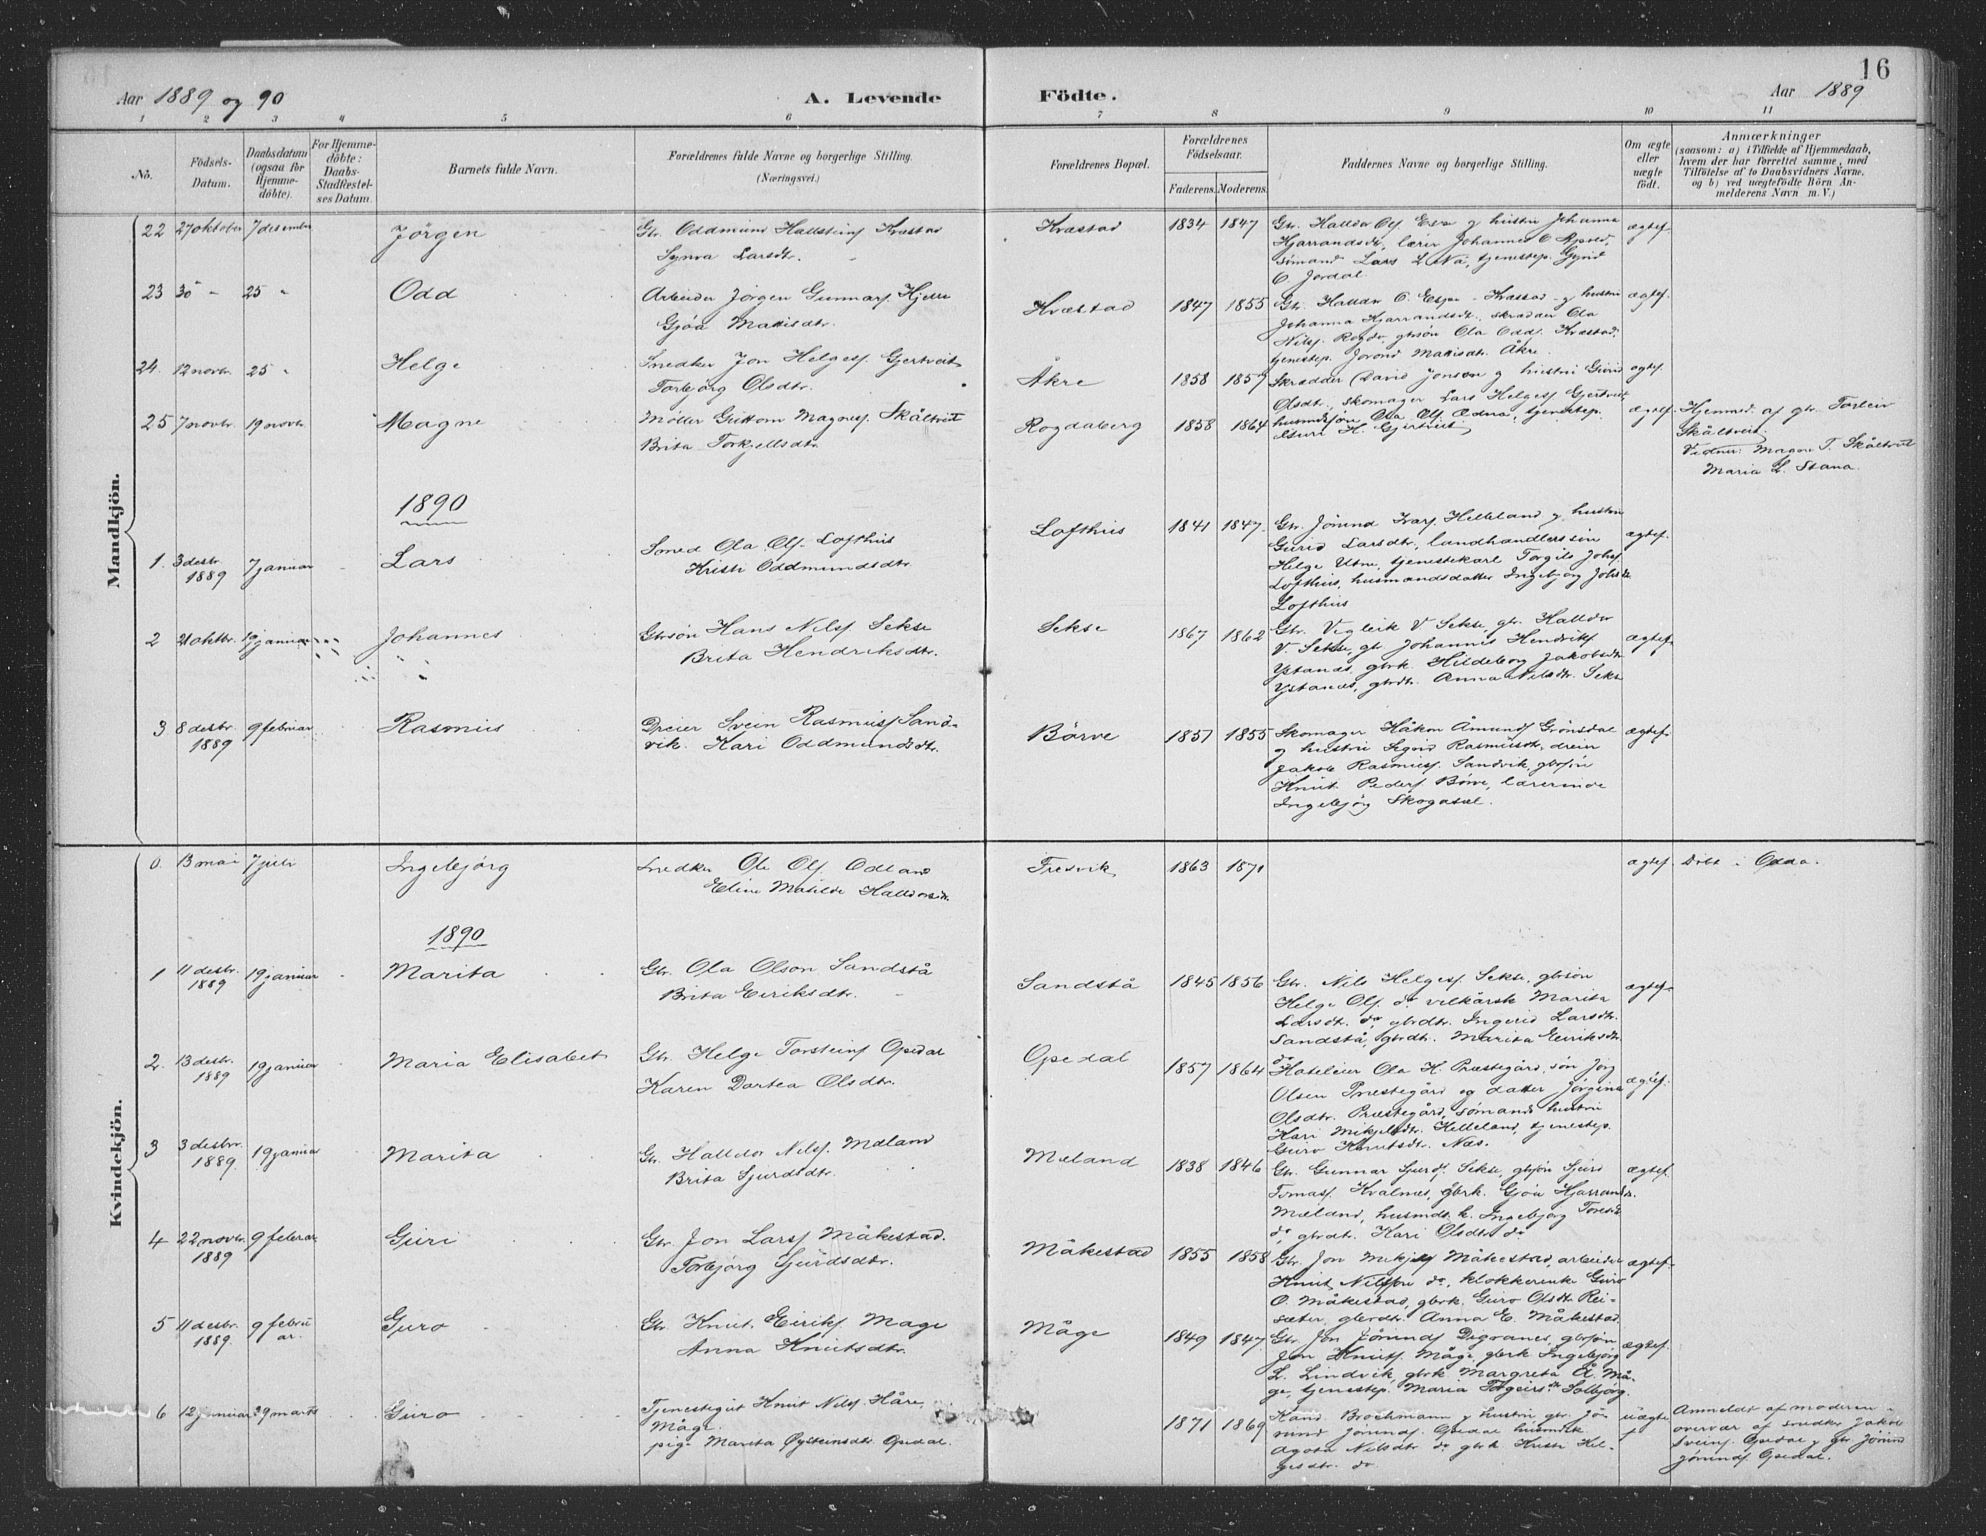 16
Aar 1889 og 90
A. Levende
Födte.
Aar 1889
1 2 3 4 5 6 7 8 9 10 11
No.
Födsels-Datum.
Daabsdatum (ogsaa for Hjemme-döbte).
For Hjemme-döbte: Daabs-Stadfæstel-ses Datum.
Barnets fulde Navn.
Forældrenes fulde Navne og borgerlige Stilling.
(Næringsvei.)
Forældrenes Bopæl.
Forældrenes Födselsaar.
Faderens. Moderens.
Faddernes Navne og borgerlige Stilling.
Om ægte eller uægte födt.
Anmærkninger
(saasom: a) i Tilfælde af Hjemmedaab, hvem der har forrettet samme, med Tilföielse af to Daabsvidners Navne, og b) ved uægtefödte Börn An-melderens Navn m. V.)
Mandkjön.
22 27 oktober 7 desember Jörgen
Gbr. Oddmund Hallsteins. Kvæstad
Synva Larsdtr.
Kvæstad 1834 1847
Gbr. Halldor Ols. Espe og hustru Johanna
Hjarrandsdtr, lærer Johannes O
sömand Lars L Na, tjenestep.
O Jordal
ægtef.
23 30 - 25 " Odd
Arbeider Jörgen Gunnars. Hjelle
Gjöa Mattisdtr.
Kvæstad 1847 1855
Gbr. Halldor O. Espe - Kvæstad - og hustru
Johanna Hjarrandsdtr, skrædder Ola
Nils. Rogde, gbrsön Ola Odds. Kvæstad,
tjenestep. Jorond Mattisdtr. Åkre.
ægtef.
24. 12 novbr. 25 " Helge
Snedker Jon Helges. Gjertveit
Torbjörg Olsdtr.
Åkre 1858 1857
Skrædder David Jonsen og hustru Gurid
Olsdtr, skomager Lars Helges. Gjertveit
husmdsön Ola Ols. Edna, tjenestep.
Guri H. Gjertveit
ægtef.
25 7 novbr. 19 novbr. Magne
Möller Guttorm Magnes. Skåltveit
Brita Torkjellsdtr.
Rogdaberg 1858 1864
ægtef.
Hjemmed. af gbr. Torleiv
Skåltveit.
Vidner: Magne T. Skåltveit
Maria L. Stana.
1890
1. 3 desbr. 1889 7 januar Lars
Smed Ola Ols. Lofthus
Kristi Oddmundsdtr.
Lofthus 1841 1847
Gbr. Jörund Ivars. Helleland og hustru
Gurid Larsdtr, landhandlerssön
Helge Utne, tjenestekarl Torgils Johs.
Lofthus, husmandsdatter Ingebjörg Johsdtr
Lofthus
ægtef.
2 21 oktbr. 19 januar Johannes
Gbrsön Hans Nils. Sekse
Brita Hendriksdtr.
Sekse 1867 1862
Gbr. Vigleik V Sekse, gbr. Halldor
V. Sekse, gbr Johannes Hendriks.
Ystanes, gbrk Hildeborg Jakobsdtr
Ystanes, gbrdtr. Anna Nilsdtr. Sekse
ægtef.
3 8 desbr. 1889 9 februar Rasmus
Dreier Svein Rasmus. Sand-
vik. Kari Oddmundsdtr.
Börve 1857 1855
Skomager Håkon Åmunds. Grönsdal
og hustru Sigrid Rasmusdtr, dreier
Jakob Rasmus. Sandvik, gbrsön
Knut Peders. Börve, lærerinde
Ingebjörg Skogasel.
ægtef.
Kvindekjön.
0. 13 mai 7 juli Ingebjörg
Snedker Ole Ols. Odland
Eline Matilde Halldorsdtr.
Tresvik 1863 1871
ægtef. Döbt i Odda.
1890
1 11 desbr. 1889 19 januar Marita
Gbr. Ola Olson Sandstå
Brita Eiriksdtr.
Sandstå 1845 1856
Gbr. Nils Helges. Sekse, gbrsön
Helge Ols. do vilkårsk Marita
Larsdtr. do, gbrdtr. Ingerid Larsdtr.
Sandstå, gbrdtr. Marita Eiriksdtr.
do
ægtef.
2. 13 desbr. 1889 19 januar Maria Elisabet
Gbr. Helge Torsteins. Opedal
Karen Dortea Olsdtr.
Opedal 1857 1864
Hoteleier Ola H. Præstegård, sön Jörg
Olsen Præstegård og datter Jörgina
Olsdtr. Præstegård, sömands hustru
Kari Mikjelsdtr. Helleland, tjenestep.
Guro Knutsdtr. Næs.
ægtef.
3 3 desbr. 1889. 19 januar Marita
Gbr. Halldor Nils. Mæland
Brita Sjurdsdtr.
Mæland 1838 1846
Gbr. Gunnar Sjurds. Sekse, gbrsön Sjurd
Tomas. Kvalnes, gbrk. Gjöa Hjarrandsdtr.
Mæland, husmdtr. k. Ingebjörg Toresdtr
do, gbrdtr. Kari Olsdtr. do
ægtef.
4 22 novbr. 1889 9 februar Guri
Gbr. Jon Lars. Måkestad.
Torbjörg Sjurdsdtr.
Måkestad 1855 1858
Gbr. Jon Mikjels. Måkestad, arbeider
Knut Nilsson do, klokkerenke Guro
O. Måkestad, gbrk. Guro Olsdtr. Rei-
sæter, gbrdtr. Anna E. Måkestad
ægtef.
5 11 desbr. 1889. 9 februar Guro
Gbr. Knut Eiriks. Måge
Anna Knutsdtr.
Måge 1849 1847
Gbr. Jon Jörunds. Digranes, gbrsön
Jon Knuts. Måge, gbrk Ingebjörg
L. Lindvik, gbrk Margreta A. Må-
ge, tjenestep. Maria Torgeirsdtr. Solbjörg.
ægtef.
6 12 januar 9 marts Guro
Tjenestegut Knut Nils. Håre,
Måge.
pige Marita Øysteinsdtr. Opedal.
1871 1869
Kand. Brochmann og hustru, gbr. Jö-
rund Jörunds. Opedal husmdk
Agota Nilsdtr do gbrk Kristi Hel-
gesdtr. do
uægte f
Anmeldt af moderen i
overvær af snedker Jakob
Sveins. Opedal og gbr. Jörund
Jörunds. Opedal.